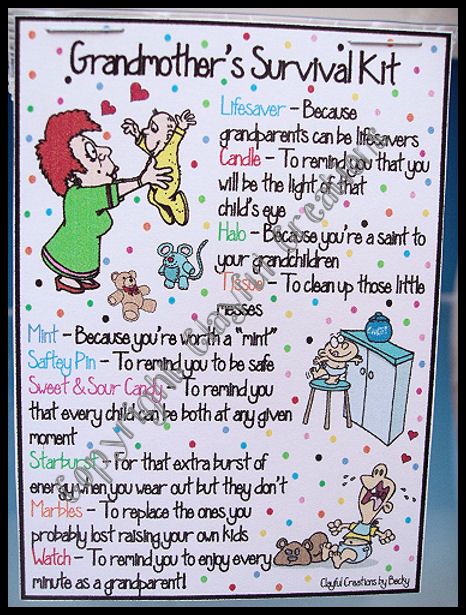 Grandmother's Survival Kit
Lifesaver – Because
grandparents can be lifesavers
Candle – To remind you that you
will be the light of that
child's eye
Halo – Because you're a saint to
your grandchildren
Tissue – To clean up those little
messes
Mint – Because you're worth a "mint"
Saftey Pin – To remind you to be safe
Sweet & Sour Candy – To remind you
that every child can be both at any given
moment
Starburst – For that extra burst of
energy when you wear out but they don't
Marbles – To replace the ones you
probably lost raising your own kids
Watch – To remind you to enjoy every
minute as a grandparent!
Clayful Creations by Becky
Copyright Clayful Creations